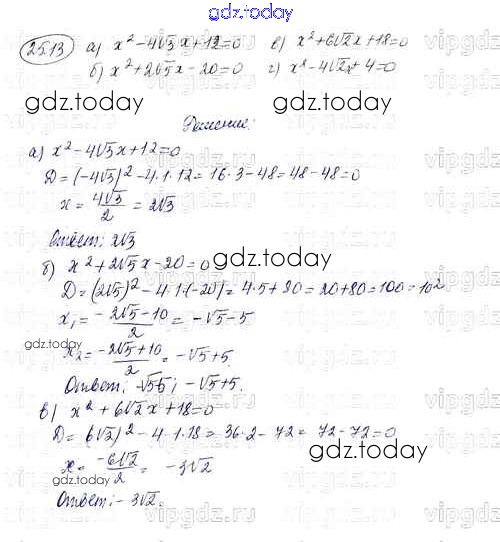 gdz.today
25.13 а) x² - 4√3x + 12 = 0 в) x² + 6√2x + 18 = 0
б) x² + 2√5x - 20 = 0 г) x² - 4√2x + 4 = 0
gdz.today gdz.today
Решение:
а) x² - 4√3x + 12 = 0
D = (-4√3)² - 4·1·12 = 16·3 - 48 = 48 - 48 = 0
x = 4√3/2 = 2√3
gdz.today
Ответ: 2√3
б) x² + 2√5x - 20 = 0
D = (2√5)² - 4·1·(-20) = 4·5 + 80 = 20 + 80 = 100 = 10²
x₁ = -2√5-10/2 = -√5-5
gdz.today
x₂ = -2√5+10/2 = -√5+5.
gdz.today
Ответ: -√5-5; -√5+5.
в) x² + 6√2x + 18 = 0
D = (6√2)² - 4·1·18 = 36·2 - 72 = 72 - 72 = 0
x = -6√2/2 = -3√2
gdz.today
Ответ: -3√2.
vipgdz.ru